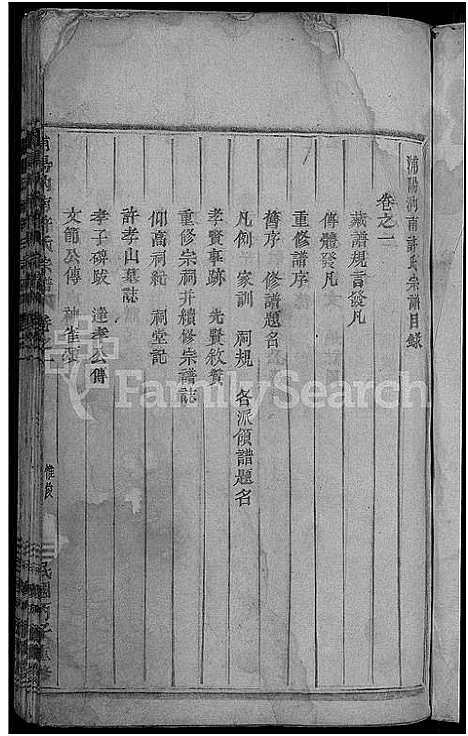 浦陽沙南許氏宗譜目錄
卷之一
藏譜規言發凡
傳體發凡
重修譜序
舊序 修譜題名
凡例 家訓 祠規 各派領譜題名
孝賢事跡 先賢敘贊
重修宗祠并續修宗譜誌
仰高祠紀 祠堂記
許孝山墓誌
孝子碑跋 達孝公傳
文節公傳
卷之一
惟俊
民國丙子
FamilySearch